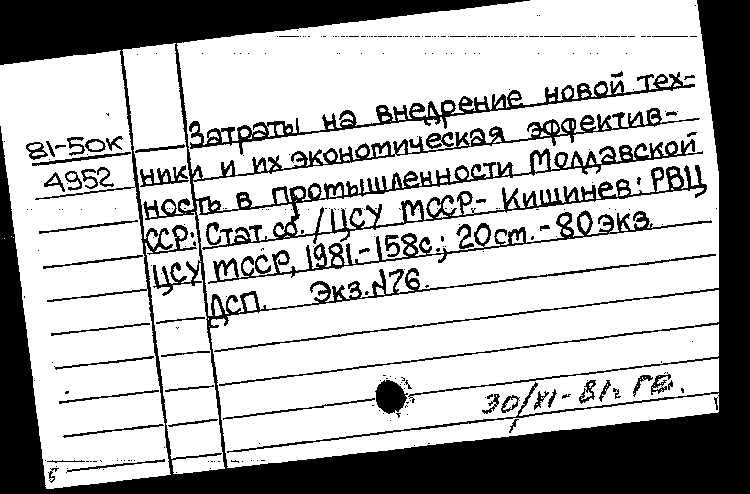 81-50к
4952
Затраты на внедрение новой тех-
ники и их экономическая эффектив-
ность в промышленности Молдавской
ССР: Стат. сб. /ЦСУ МССР.- Кишинев: РВЦ
ЦСУ МССР, 1981.-158с.; 20см.-80экз.
ДСП. Экз.N76.
30/XI-81г. ГВ.